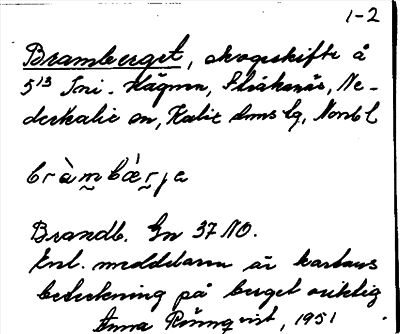 1-2
Bramberget, skogsskifte å
5¹³ Toni-Kägman, Stråkanäs, Ne-
derkalix sn, Kalix tmslg, Nordb l
bràmbær̨ja
Brandb. Gn 37 NO.
Enl. meddelaren är kartans
beteckning på berget oriktig
Anna Rönnqvist, 1951